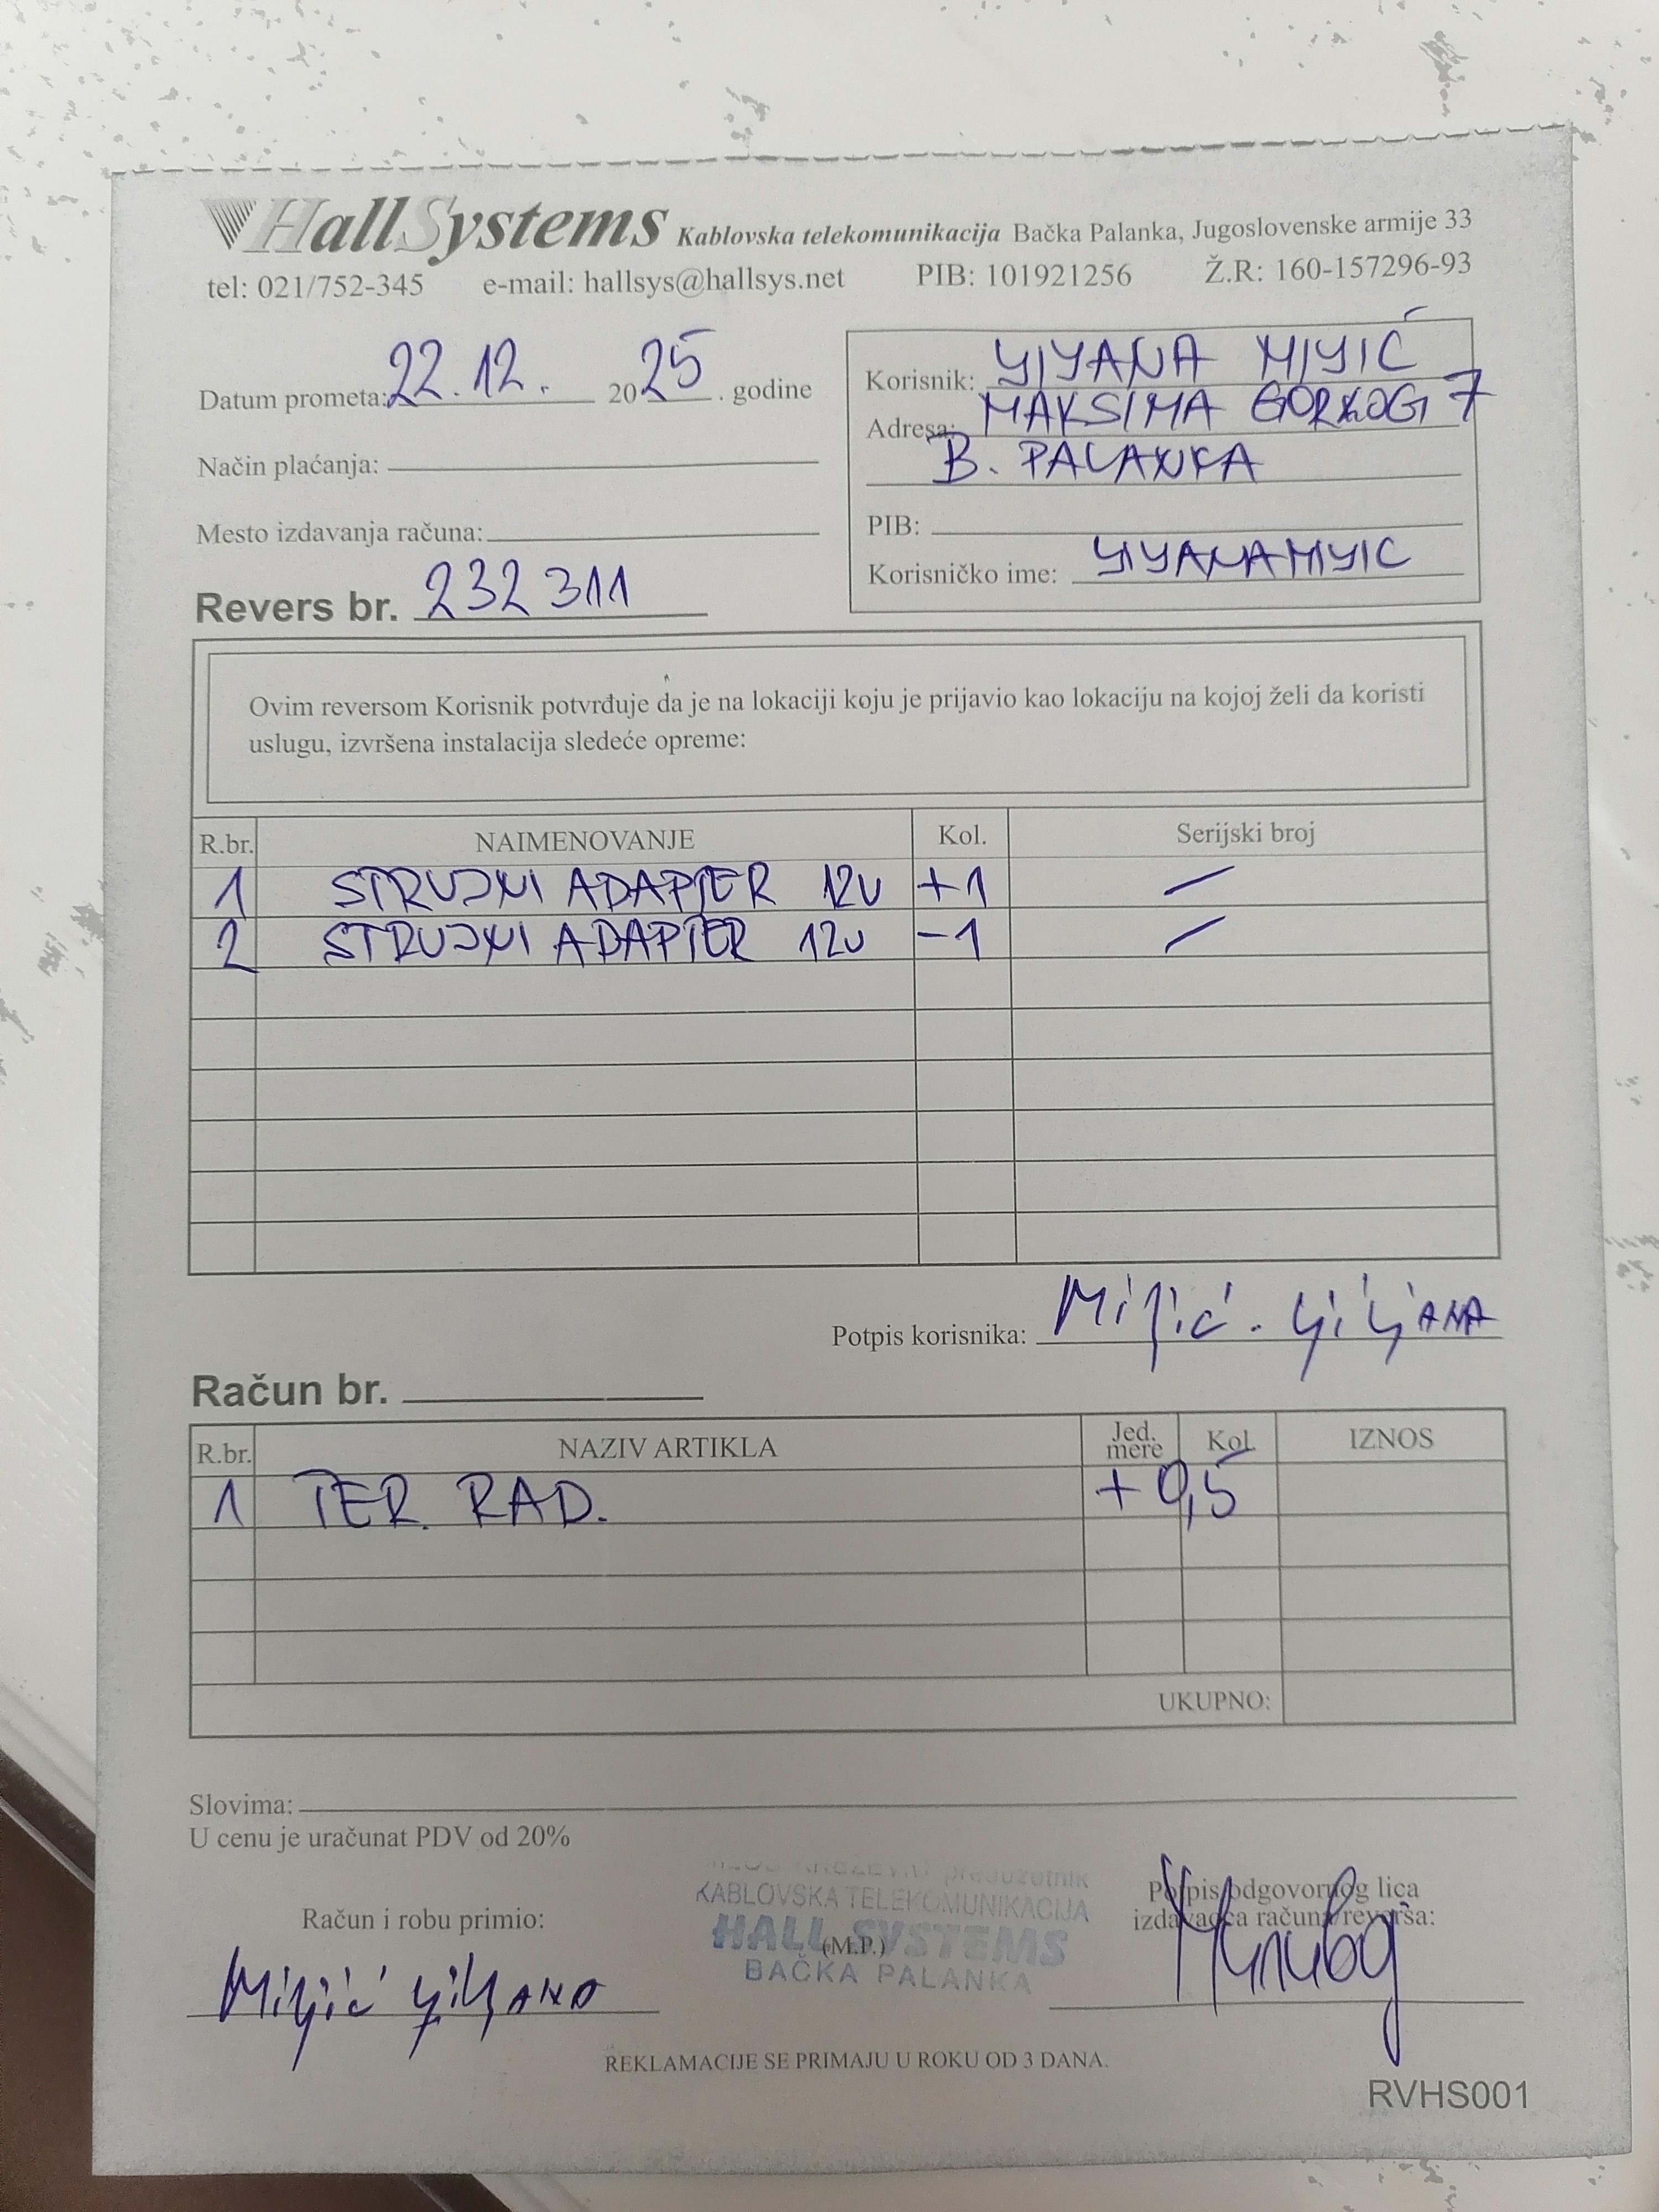 HallSystems Kablovska telekomunikacija Bačka Palanka, Jugoslovenske armije 33
tel: 021/752-345 e-mail: hallsys@hallsys.net PIB: 101921256 Ž.R: 160-157296-93
Datum prometa: 22.12. 2025. godine
Način plaćanja:
Mesto izdavanja računa:
Revers br. 232311
Korisnik: LJILJANA MILJIĆ
Adresa: MAKSIMA GORKOG 7
B. PALANKA
PIB:
Korisničko ime: LJILJANAMILJIC
Ovim reversom Korisnik potvrđuje da je na lokaciji koju je prijavio kao lokaciju na kojoj želi da koristi
uslugu, izvršena instalacija sledeće opreme:
R.br. NAIMENOVANJE Kol. Serijski broj
1 STRUJNI ADAPTER 12V +1 –
2 STRUJNI ADAPTER 12V -1 –
Potpis korisnika: Miljić Ljiljana
Račun br.
R.br. NAZIV ARTIKLA Jed. mere Kol. IZNOS
1 TER. RAD. +0,5
UKUPNO:
Slovima:
U cenu je uračunat PDV od 20%
Račun i robu primio:
Miljić Ljiljana
preduzetnik
KABLOVSKA TELEKOMUNIKACIJA
HALL SYSTEMS
(M.P.)
BAČKA PALANKA
Potpis odgovornog lica
izdavaoca računa/reversa:
REKLAMACIJE SE PRIMAJU U ROKU OD 3 DANA.
RVHS001